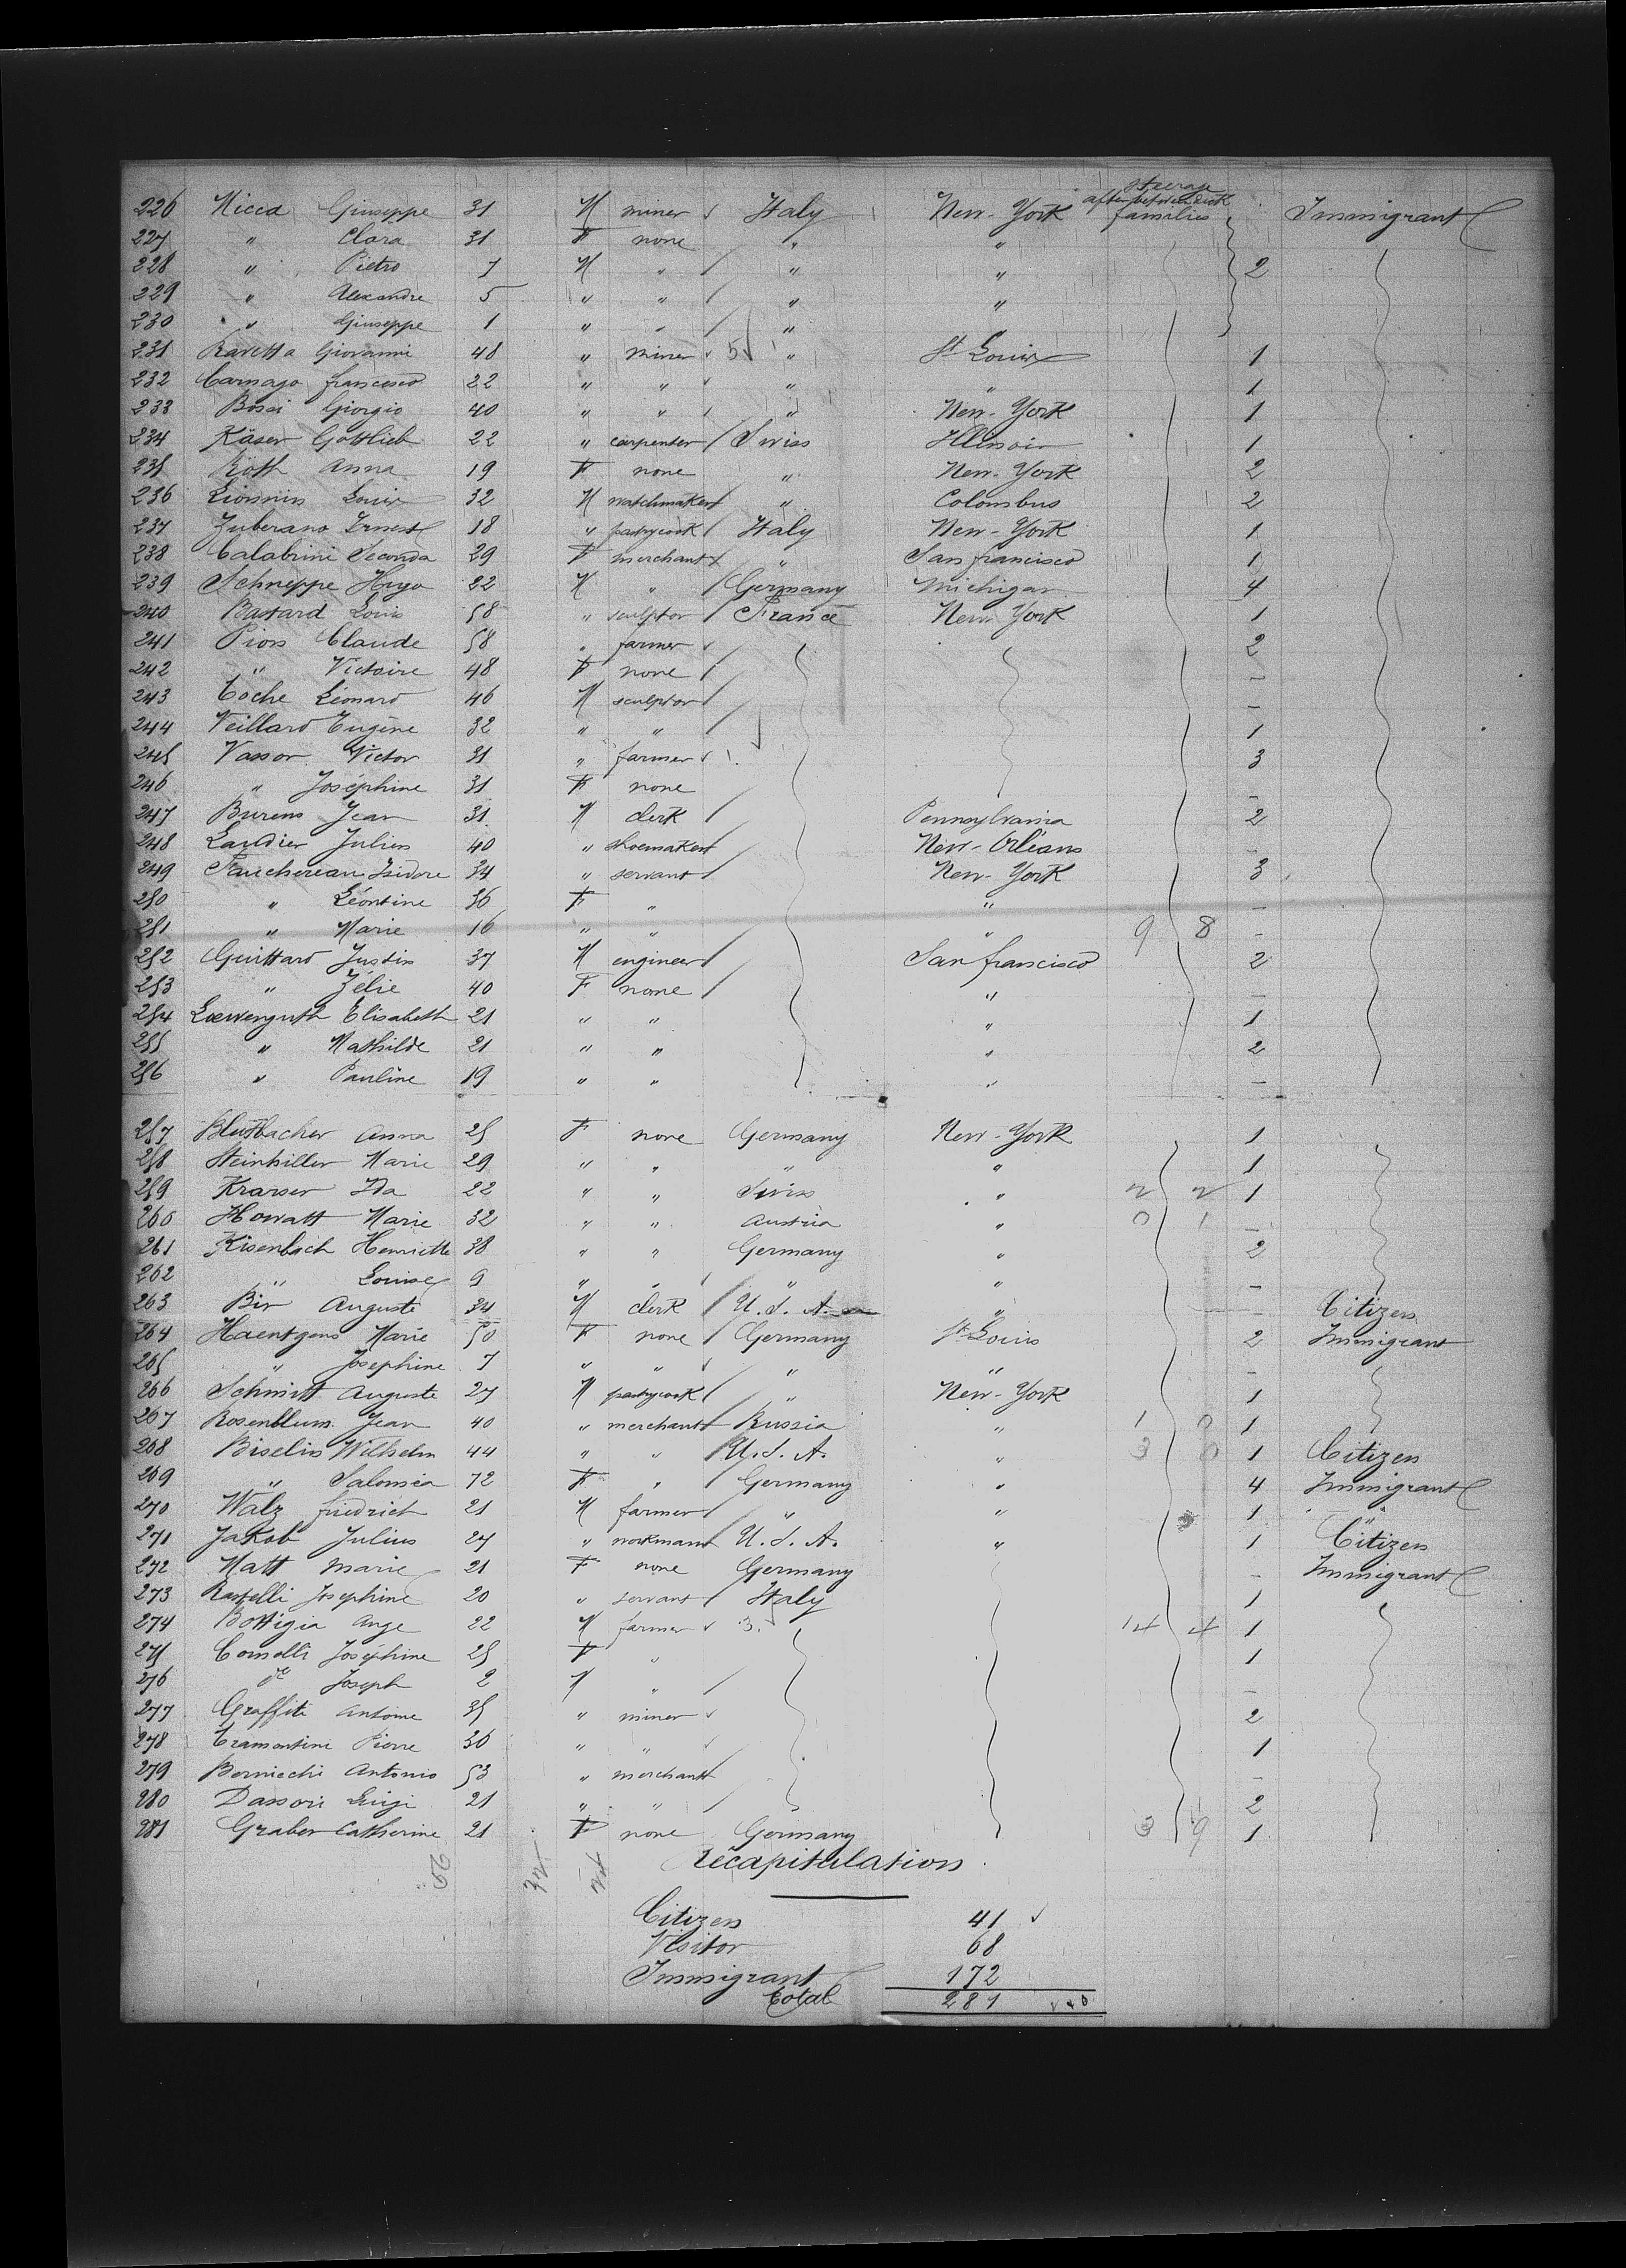 steerage
226 Nicca Giuseppe 31 M miner Italy New-York after between deck families Immigrant
227 " Clara 31 F none " "
228 " Pietro 7 M " " " 2
229 " Alexandre 5 " " " "
230 " Giuseppe 1 " " "
231 Ravetta Giovanni 48 " miner 5 " St Louis 1
232 Carnago francesco 22 " " " " 1
233 Bossi Giorgio 40 " " " New-York 1
234 Käser Gottlieb 22 " carpenter Swiss Illinois 1
235 Röth Anna 19 F none " New-York 2
236 Louis 32 M watchmaker " Colombus 2
237 Zuberano Ernest 18 " pastrycook Italy New-York 1
238 Calabrini Seconda 29 F merchant " San francisco 1
239 Schneppe Hugo 22 M " Germany Michigan 4
240 Bastard Louis 58 " sculptor France New York 1
241 Pion Claude 58 " farmer 2
242 " Victoire 48 F none -
243 Coche Léonard 46 M sculptor -
244 Veillard Eugène 32 " " 1
245 Vassor Victor 31 " farmer 3
246 " Joséphine 31 F none -
247 Burens Jean 31 M clerk Pennsylvania 2
248 Laudier Julien 40 " shoemaker New-Orléans -
249 Fauchereau Isidore 34 " servant New-York 3
250 " Léontine 36 F " " -
251 " Marie 16 " " " 9 8 -
252 Guittard Justin 37 M engineer San francisco 2
253 " Zélie 40 F none " -
254 Loewenguth Elisabeth 21 " " " 1
255 " Mathilde 21 " " " 2
256 " Pauline 19 " " " -
257 Blustbacher Anna 25 F none Germany New-York 1
258 Steinhiller Marie 29 " " " " 1
259 Kramer Ida 22 " " Swiss " 2 2 1
260 Howatt Marie 32 " " Austria " 0 1 -
261 Kisenbach Henriette 38 " " Germany " 2
262 " Louise 9 " " " " -
263 Bir Auguste 34 M clerk U.S.A. " - Citizen
264 Haentgens Marie 50 F none Germany St Louis 2 Immigrant
265 " Josephine 7 " " " " -
266 Schmitt Auguste 27 M pastrycook " New-York 1
267 Rosenblum Jean 40 " merchant Russia " 1 0 1
268 Biselin Wilhelm 44 " " U.S.A. " 3 0 1 Citizen
269 " Salomea 72 F " Germany " 4 Immigrant
270 Walz friedrich 21 M farmer " " 1 "
271 Jakob Julius 27 " workman U.S.A. " 1 Citizen
272 Matt Marie 21 F none Germany - Immigrant
273 Rastelli Josephine 20 " servant Italy 1
274 Bottigia Ange 22 M farmer 3 14 4 1
275 Comolli Joséphine 25 F " 1
276 de Joseph 2 M " -
277 Graffiti Antoine 35 " miner 2
278 Tramontini Pierre 30 " " 1
279 Berniechi Antonio 53 " merchant -
280 Dassori Luigi 21 " " 2
281 Graber Catherine 21 F none Germany 3 9 1
Récapitulation
Citizen 41
Visitor 68
Immigrant 172
Total 281